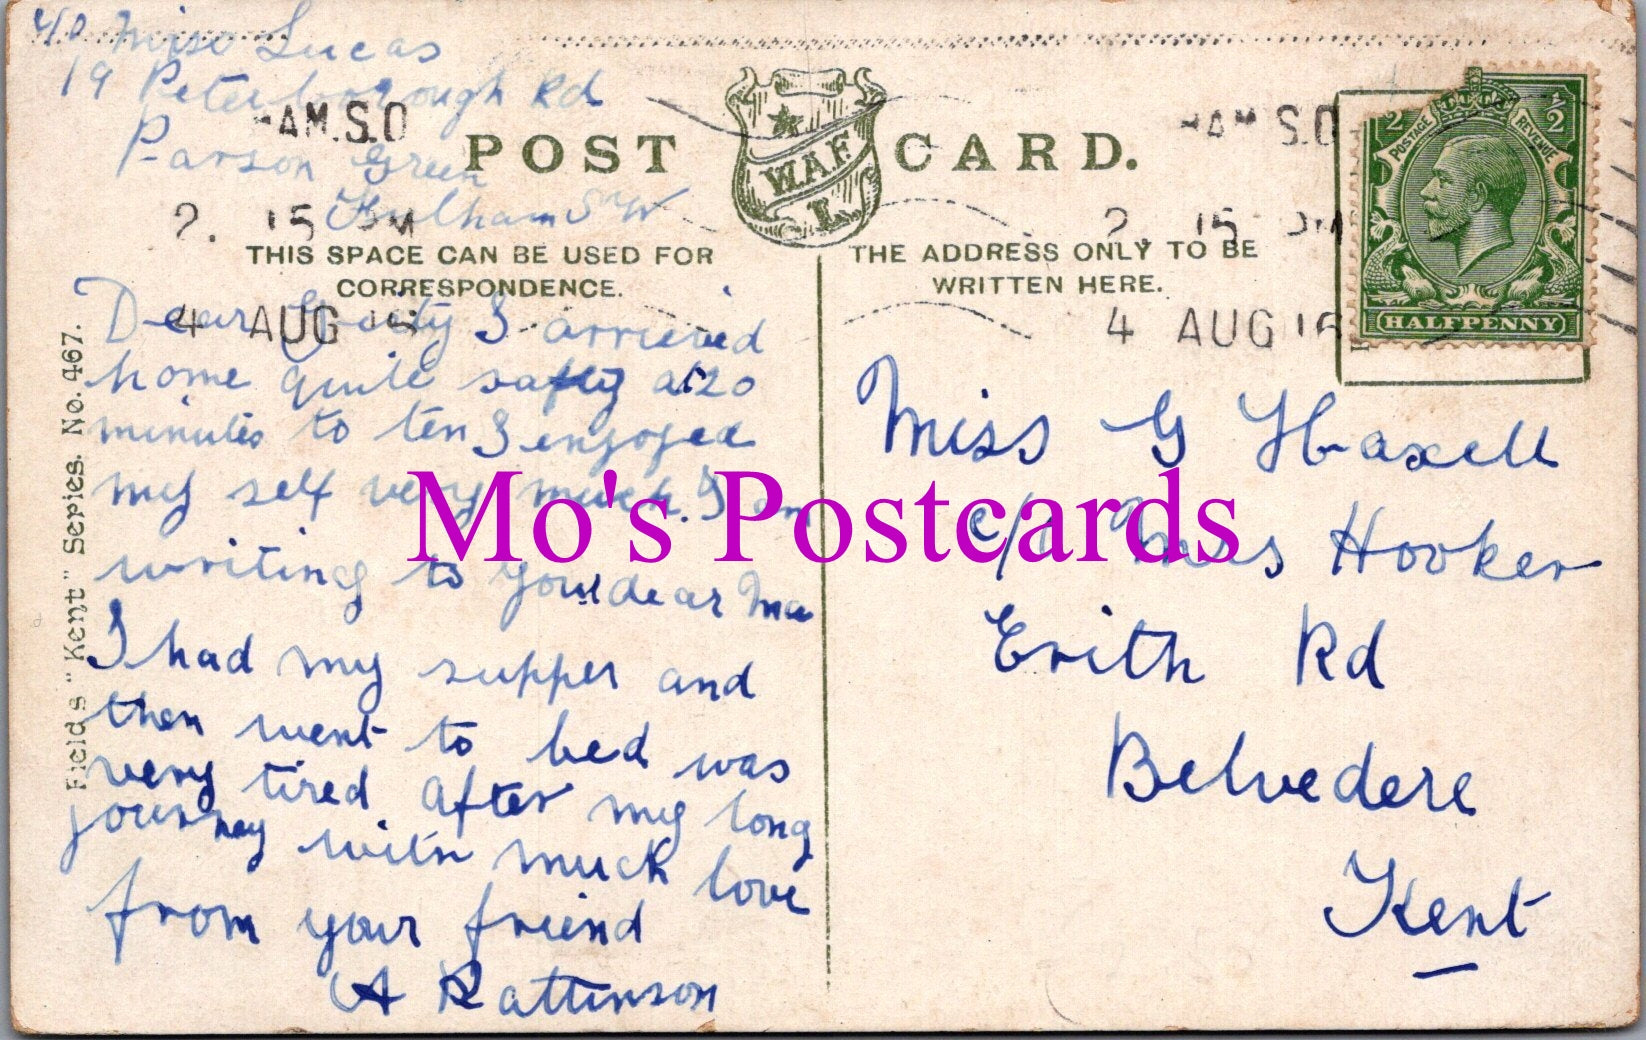 c/o Miss Lucas
19 Peterborough Rd
Parson Green
Fulham S W
HAM.S.O
2. 15 PM
4 AUG 16
POST CARD.
W.A.F.
L.
HAM S.O
2 15 PM
4 AUG 16
1/2 1/2
POSTAGE REVENUE
HALFPENNY
THIS SPACE CAN BE USED FOR
CORRESPONDENCE.
THE ADDRESS ONLY TO BE
WRITTEN HERE.
Field's "Kent" Series. No. 467.
Dear I arrieved
home quite safty at 20
minutes to ten I enjoyed
my self very much. I am
writing to your dear Ma
I had my supper and
then went to bed was
very tired after my long
journey with muck love
from your friend
A Rattinson
Miss G Haxell
c/o Mrs Hooker
Erith Rd
Belvedere
Kent
Mo's Postcards